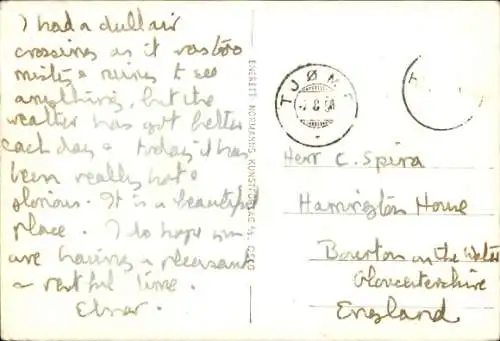 I had a dull air
crossing as it was too
misty & rainy to see
anything, but the
weather has got better
each day & today it has
been really hot &
glorious. It is a beautiful
place. I do hope you
are having a pleasant
& restful time.
ENERETT NORMANNS KUNSTFORLAG A/S, OSLO
TJØM
8
Herr C. Spira
Harrington House
Bourton on the Water
Gloucestershire
England